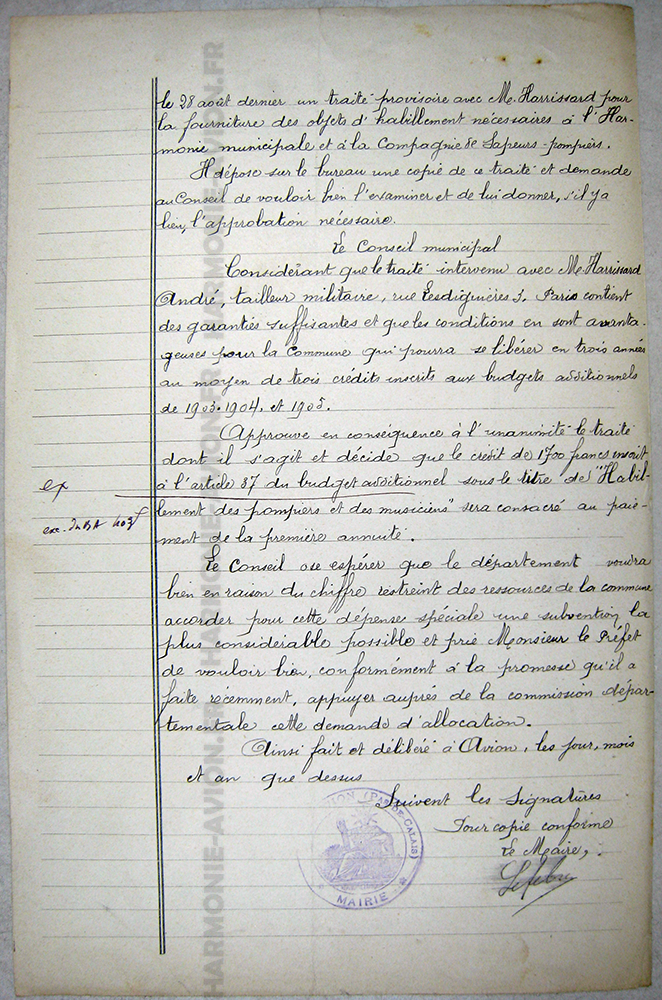 le 28 août dernier un traité provisoire avec M. Harrissard pour
la fourniture des objets d'habillement nécessaires à l'Har-
monie municipale et à la Compagnie de Sapeurs-pompiers.
Il dépose sur le bureau une copie de ce traité et demande
au Conseil de vouloir bien l'examiner et de lui donner, s'il y a
lieu, l'approbation nécessaire.
Le Conseil municipal
Considérant que le traité intervenu avec M. Harrissard
André, tailleur militaire, rue Lesdiguières 5. Paris contient
des garanties suffisantes et que les conditions en sont avanta-
geuses pour la Commune qui pourra se libérer en trois années
au moyen de trois crédits inscrits aux budgets additionnels
de 1903. 1904. et 1905.
Approuve en conséquence à l'unanimité le traité
dont il s'agit et décide que le crédit de 1700 francs inscrit
ex
à l'article 87 du budget additionnel sous le titre de "Habil-
lement des pompiers et des musiciens" sera consacré au paie-
ment de la première annuité.
Le Conseil ose espérer que le département voudra
bien en raison du chiffre restreint des ressources de la commune
accorder pour cette dépense spéciale une subvention la
plus considérable possible et prie Monsieur le Préfet
de vouloir bien, conformément à la promesse qu'il a
faite récemment, appuyer auprès de la commission dépar-
tementale cette demande d'allocation.
Ainsi fait et délibéré à Avion, les jour, mois
et an que dessus
Suivent les Signatures
Pour copie conforme
Le Maire,
Lefebv
(PAS-DE-CALAIS)
MAIRIE
HARMONIE-AVION.FR HARMONIE-AVION.FR HARMONIE-AVION.FR